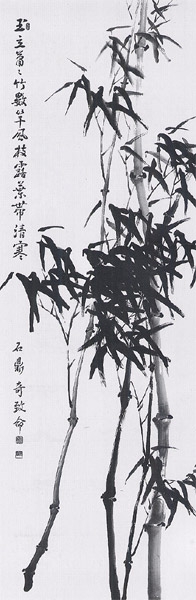 玉立蕭〻竹數竿風枝露葉帶清寒
石鼎奇致命